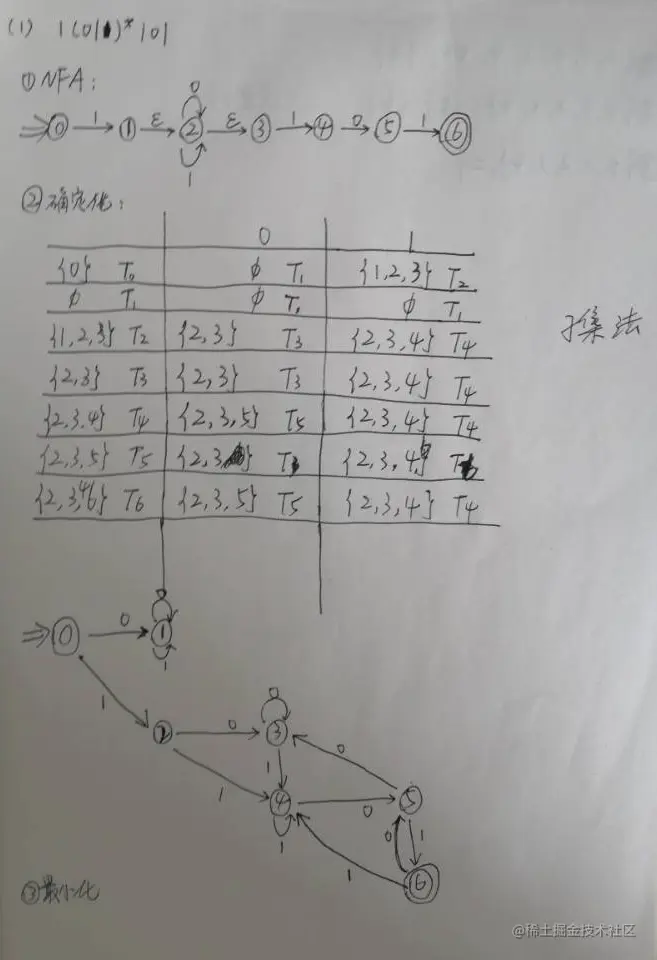 (1) 1(0|1)*101
① NFA:
0
⇒ 0 1 → 1 ε → 2 ε → 3 1 → 4 0 → 5 1 → 6
1
② 确定化:
0 1
{0} T₀ ϕ T₁ {1,2,3} T₂
ϕ T₁ ϕ T₁ ϕ T₁
{1,2,3} T2 {2,3} T3 {2,3,4} T4
{2,3} T3 {2,3} T3 {2,3,4} T4
{2,3,4} T4 {2,3,5} T5 {2,3,4} T4
{2,3,5} T5 {2,3} T3 {2,3,4,6} T6
{2,3,4,6} T6 {2,3,5} T5 {2,3,4} T4
子集法
0
⇒ 0 0 1
1
1
0
2 0 3
1 1 0
4 0 5
1 0 1
1 6
③ 最小化
@稀土掘金技术社区